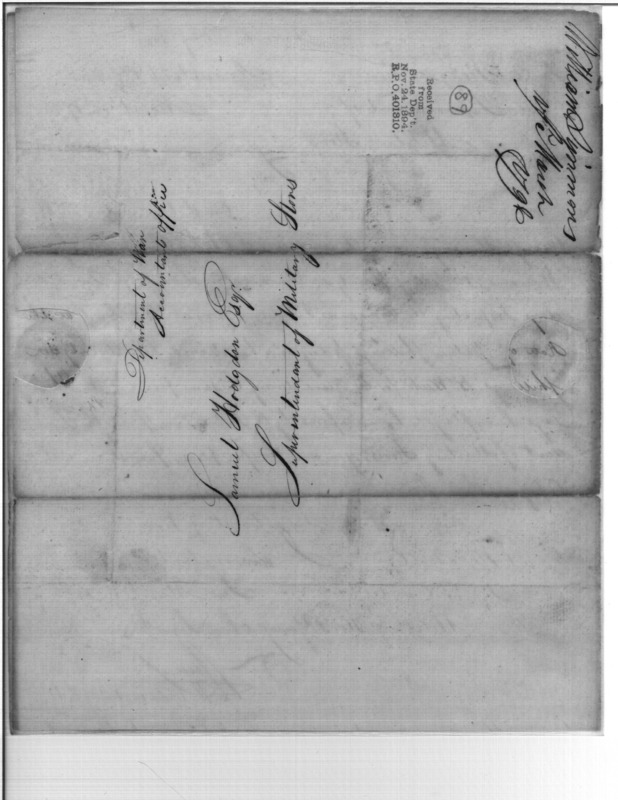 Department of War
Accountants office
Samuel Hodgdon Esqr.
Superintendant of Military Stores
Received
from
State Dep't.
Nov. 24, 1894.
R.P.O. 401810.
89
William Simmons
March